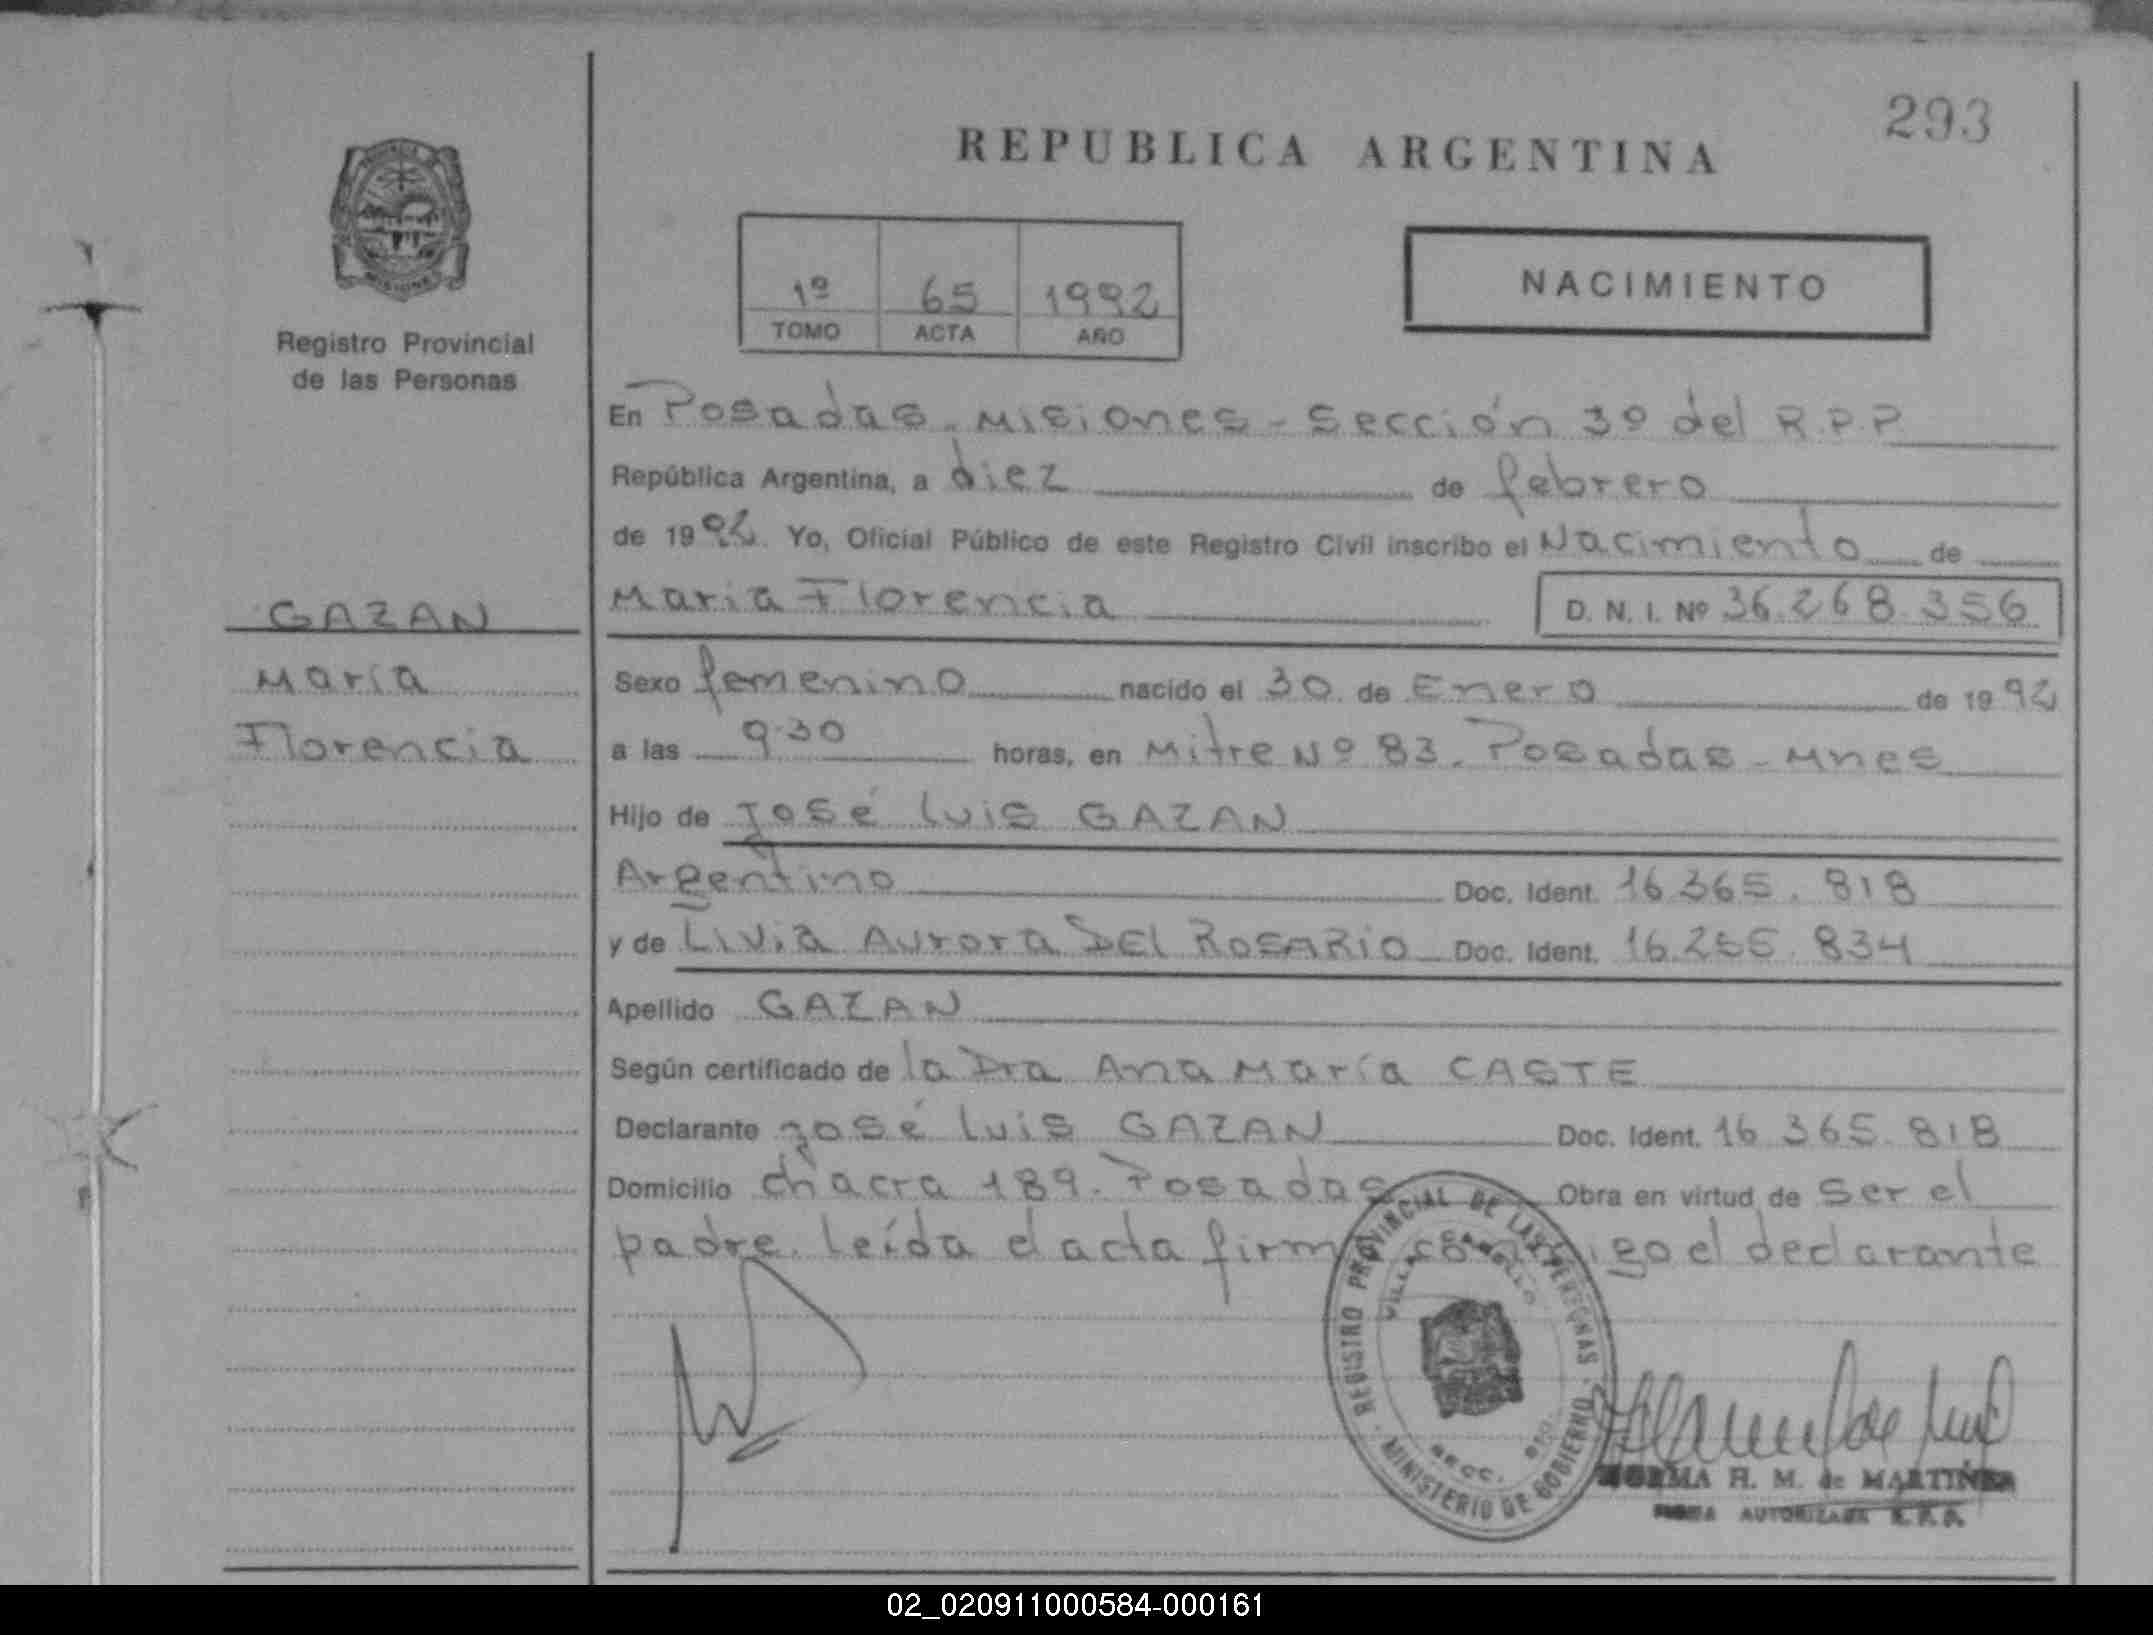 293
REPUBLICA ARGENTINA
NACIMIENTO
1º 65 1992
TOMO ACTA AÑO
Registro Provincial
de las Personas
En Posadas. Misiones - Sección 3º del R.P.P
República Argentina, a diez de febrero
de 1992. Yo, Oficial Público de este Registro Civil inscribo el Nacimiento de
Maria Florencia D. N. I. Nº 36.268.356
GAZAN
María
Florencia
Sexo femenino nacido el 30 de Enero de 1992
a las 9.30 horas, en Mitre Nº 83. Posadas - Mnes
Hijo de José Luis GAZAN
Argentino Doc. Ident. 16.365.818
y de Livia Aurora DEL ROSARIO Doc. Ident. 16.255.834
Apellido GAZAN
Según certificado de la Dra Ana María CASTE
Declarante José Luis GAZAN Doc. Ident. 16.365.818
Domicilio chacra 189. Posadas Obra en virtud de Ser el
padre. Leída el acta firma conmigo el declarante
REGISTRO PROVINCIAL DE LAS PERSONAS
MINISTERIO DE GOBIERNO
NORMA H. M. de MARTINEZ
FIRMA AUTORIZADA R.P.P.
02_020911000584-000161